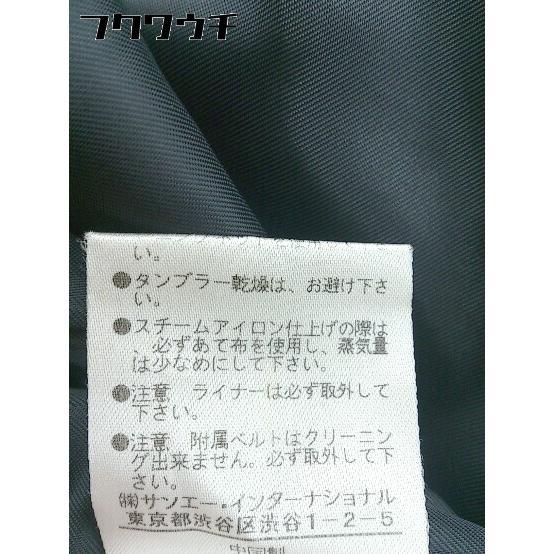 フクワウチ
い。
●タンブラー乾燥は、お避け下さ
い。
●スチームアイロン仕上げの際は
、必ずあて布を使用し、蒸気量
は少なめにして下さい。
●注意　ライナーは必ず取外して
下さい。
●注意　附属ベルトはクリーニン
グ出来ません。必ず取外して下
さい。
㈱サンエー・インターナショナル
東京都渋谷区渋谷1-2-5
中国製